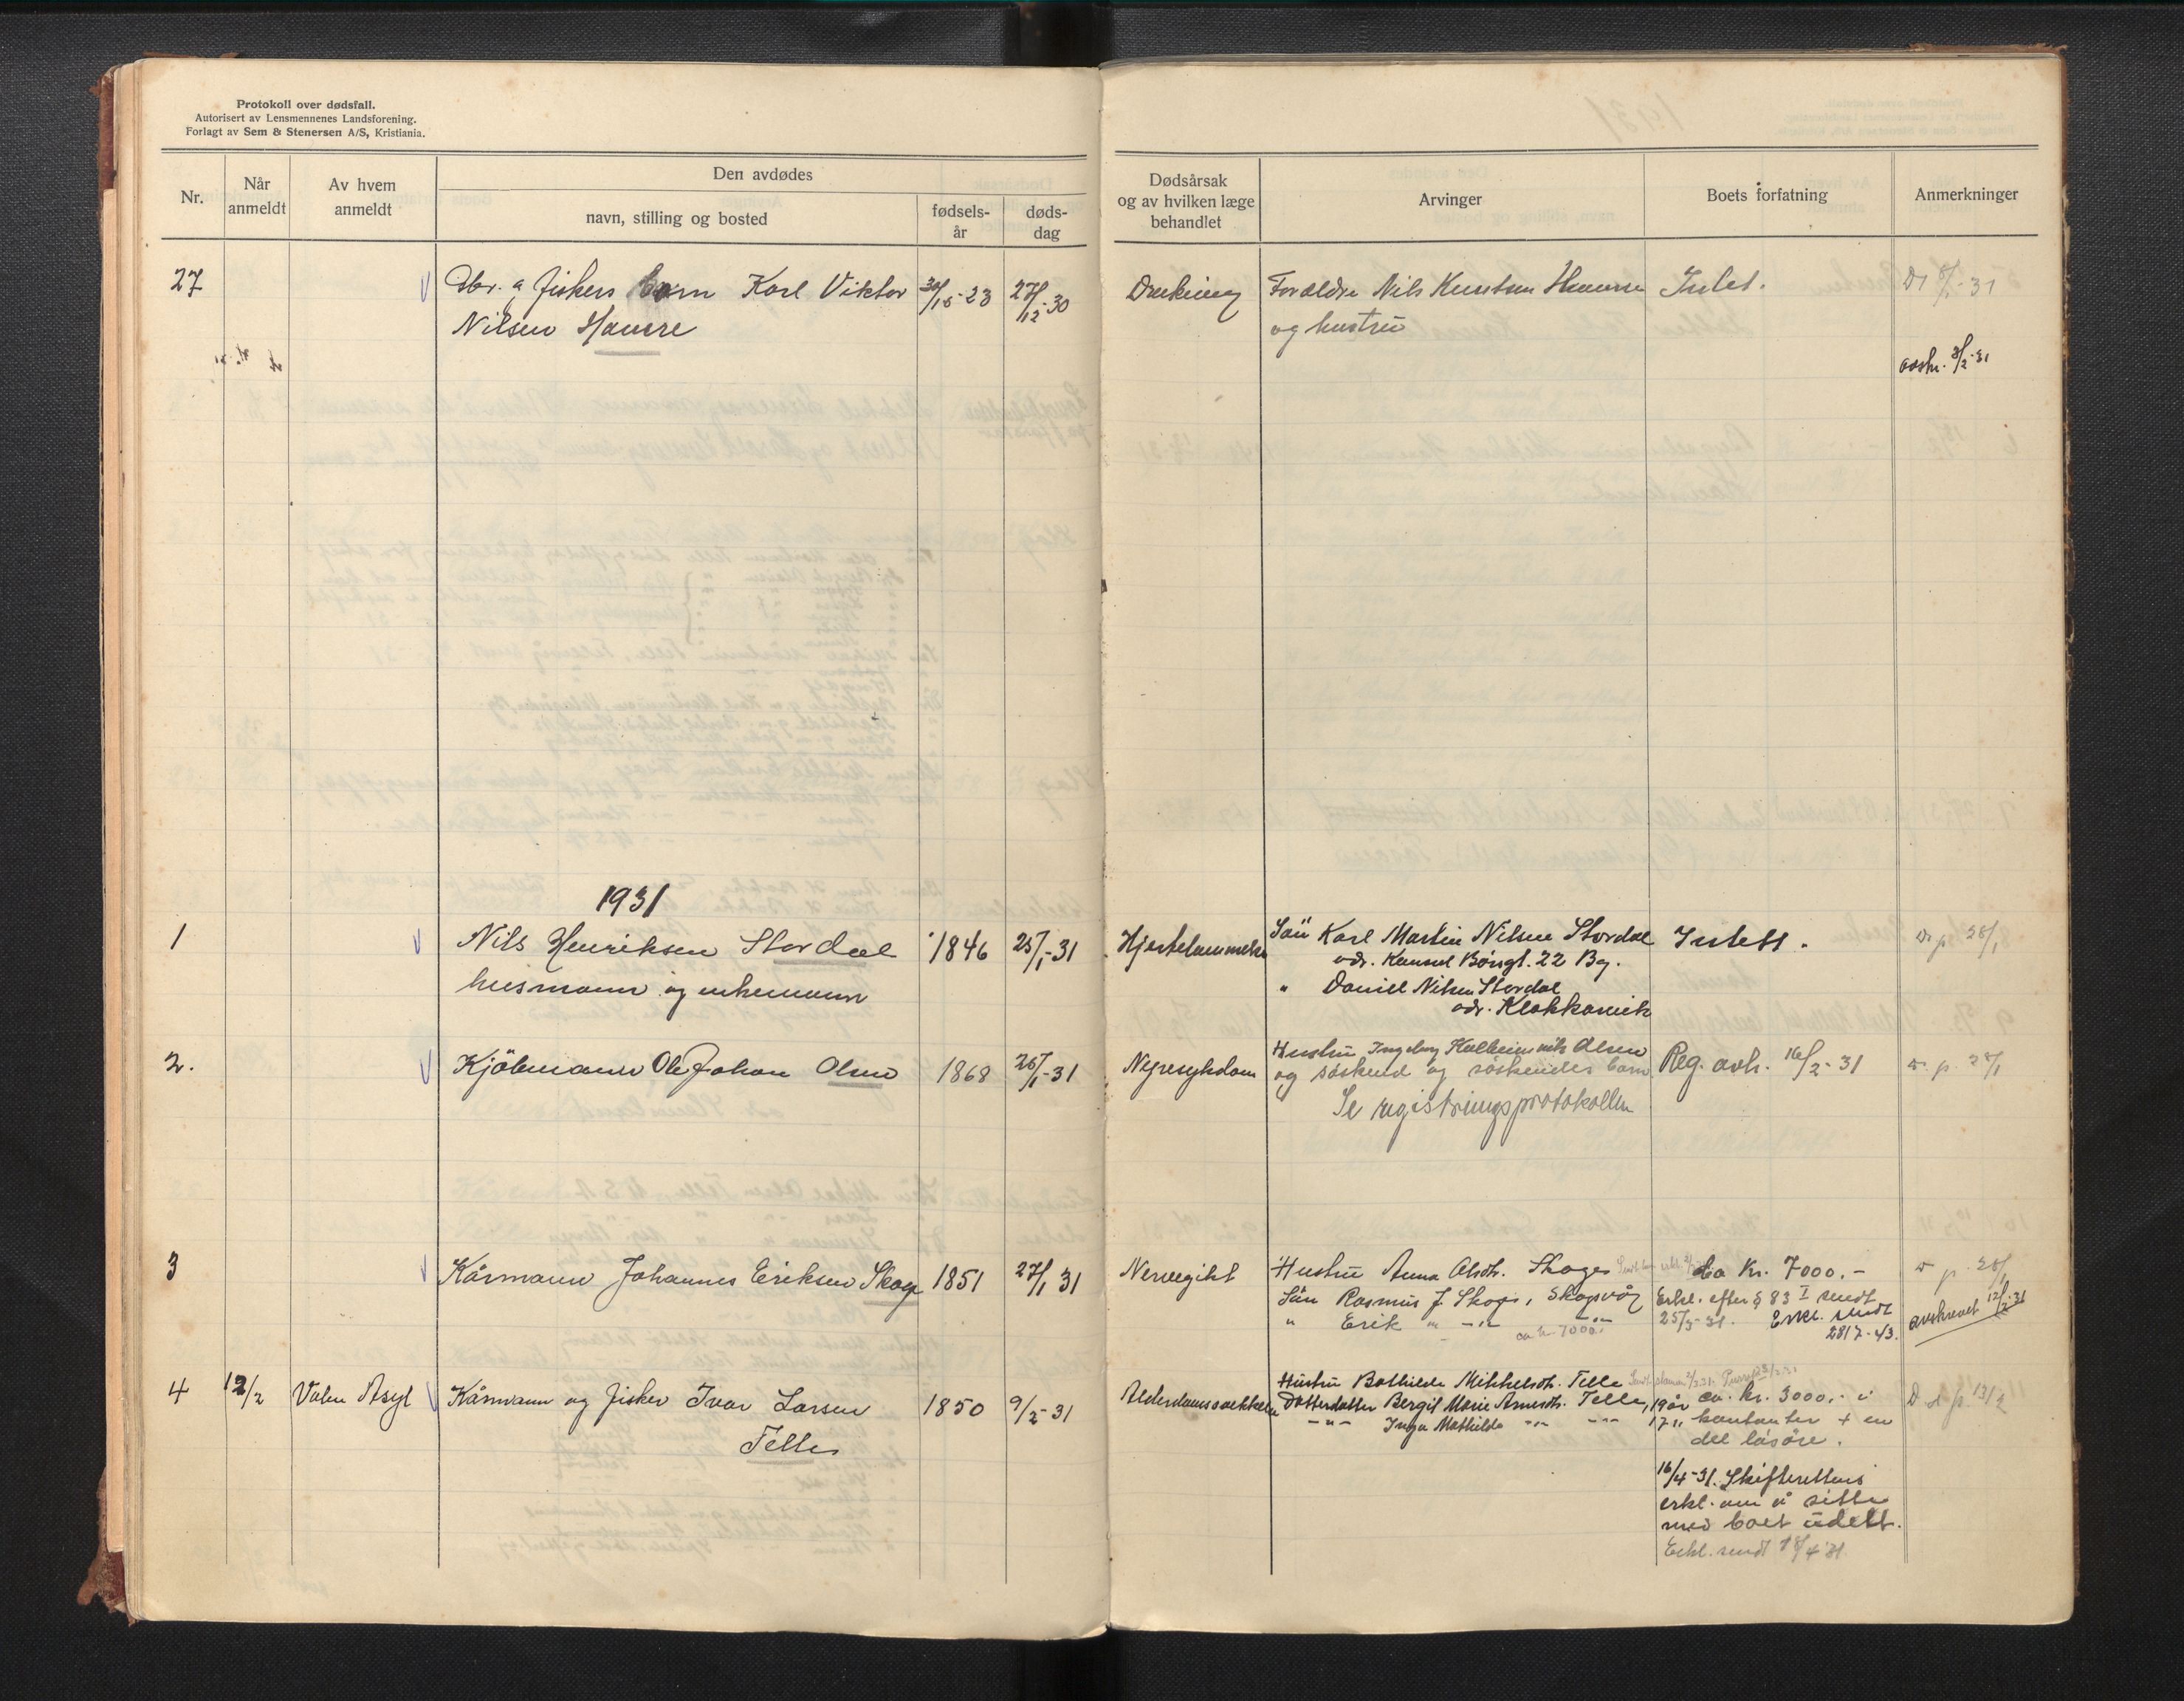 Protokoll over dødsfall.
Autorisert av Lensmennenes Landsforening.
Forlagt av Sem & Stenersen A/S, Kristiania.
Nr.
Når anmeldt
Av hvem anmeldt
Den avdødes
navn, stilling og bosted
fødsels-
år
døds-
dag
Dødsårsak
og av hvilken læge
behandlet
Arvinger
Boets forfatning
Anmerkninger
27
Gbr. g fiskers barn Karl Viktor
Nilsen Havsre
27/12-30
Drukning
Foreldre Nils Knutsen
og hustru
Intet.
avskr. 3/2-31
1931
1
Nils Henriksen Stordal
husmann og enkemann
1846
25/1-31
Hjertelammelse
Sön Karl Martin Nilsen Stordal
adr. Konsul Börsgt. 22 Bg.
" Daniel Nilsen Stordal
adr. Klokkarvik
Intet.
28/1
2.
Kjöbmann Ole Johan Olsen
1868
26/1-31
Nyresykdom
Hustru Ingeborg Olsen
og söskend og söskendes barn
Se registringsprotokollen
Reg. avh. 16/2-31
28/1
3
Kårmann Johannes Eriksen Skoge
1851
27/1 31
Nervegikt
Hustru Anna Olsdt. Skoge
Sön Rasmus J. Skoge, Skogsvåg
" Erik " -"- -"-
ca kr. 7000.-
Ca Kr. 7000.-
Erkl. efter § 83 I sendt
25/3-31. Erkl. sendt
28/7-43.
28/1
avskrevet 12/2-31
4
12/2
Valen Asyl
Kårmann og fisker Ivar Larsen
Telle
1850
9/2-31
Alderdomssvekkelse
Hustru Bothilde Mikkelsdt. Telle
Dotterdatter Bergit Marie Arnesdt. Telle, 19 år
-"- Inga Mathilde -"- -"- 17 "
ca. kr. 3000.- i
kontanter + en
del lösöre.
16/4-31. Skifterettens
erkl. om å sitte
med boet udelt.
Erkl. sendt 18/4 31.
13/2